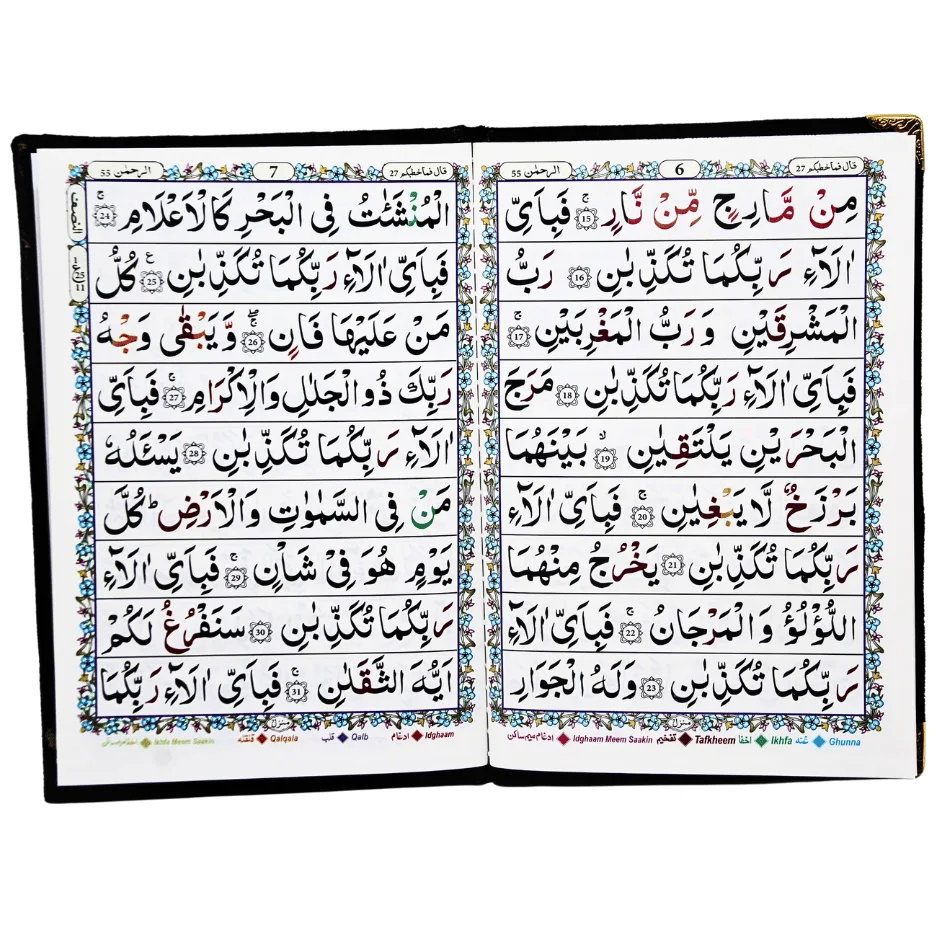 قال فماخطبکم 27
6
الرحمٰن 55
مِنْ مَّارِجٍ مِّنْ نَّارٍ ۚ 15 فَبِاَىِّ
اٰلَآءِ رَبِّكُمَا تُكَذِّبٰنِ 16 رَبُّ
الْمَشْرِقَيْنِ وَرَبُّ الْمَغْرِبَيْنِ ۚ 17
فَبِاَىِّ اٰلَآءِ رَبِّكُمَا تُكَذِّبٰنِ 18 مَرَجَ
الْبَحْرَيْنِ يَلْتَقِيٰنِ ۙ 19 بَيْنَهُمَا
بَرْزَخٌ لَّا يَبْغِيٰنِ ۚ 20 فَبِاَىِّ اٰلَآءِ
رَبِّكُمَا تُكَذِّبٰنِ 21 يَخْرُجُ مِنْهُمَا
اللُّؤْلُؤُ وَالْمَرْجَانُ ۚ 22 فَبِاَىِّ اٰلَآءِ
رَبِّكُمَا تُكَذِّبٰنِ 23 وَلَهُ الْجَوَارِ
منزل
Ghunna غنه Ikhfa اخفا Tafkheem تفخیم Idghaam Meem Saakin ادغام میم ساکن
قال فماخطبکم 27
7
الرحمٰن 55
الْمُنْشَئٰتُ فِى الْبَحْرِ كَالْاَعْلَامِ ۚ 24
فَبِاَىِّ اٰلَآءِ رَبِّكُمَا تُكَذِّبٰنِ ع 25 كُلُّ
مَنْ عَلَيْهَا فَانٍ ۚۖ 26 وَّيَبْقٰى وَجْهُ
رَبِّكَ ذُو الْجَلٰلِ وَالْاِكْرَامِ ۚ 27 فَبِاَىِّ
اٰلَآءِ رَبِّكُمَا تُكَذِّبٰنِ 28 يَسْئَلُهٗ
مَنْ فِى السَّمٰوٰتِ وَالْاَرْضِ ؕ كُلَّ
يَوْمٍ هُوَ فِىْ شَاْنٍ ۚ 29 فَبِاَىِّ اٰلَآءِ
رَبِّكُمَا تُكَذِّبٰنِ 30 سَنَفْرُغُ لَكُمْ
اَيُّهَ الثَّقَلٰنِ ۚ 31 فَبِاَىِّ اٰلَآءِ رَبِّكُمَا
النصف
منزل
Idghaam ادغام Qalb قلب Qalqala قلقله Ikhfa Meem Saakin